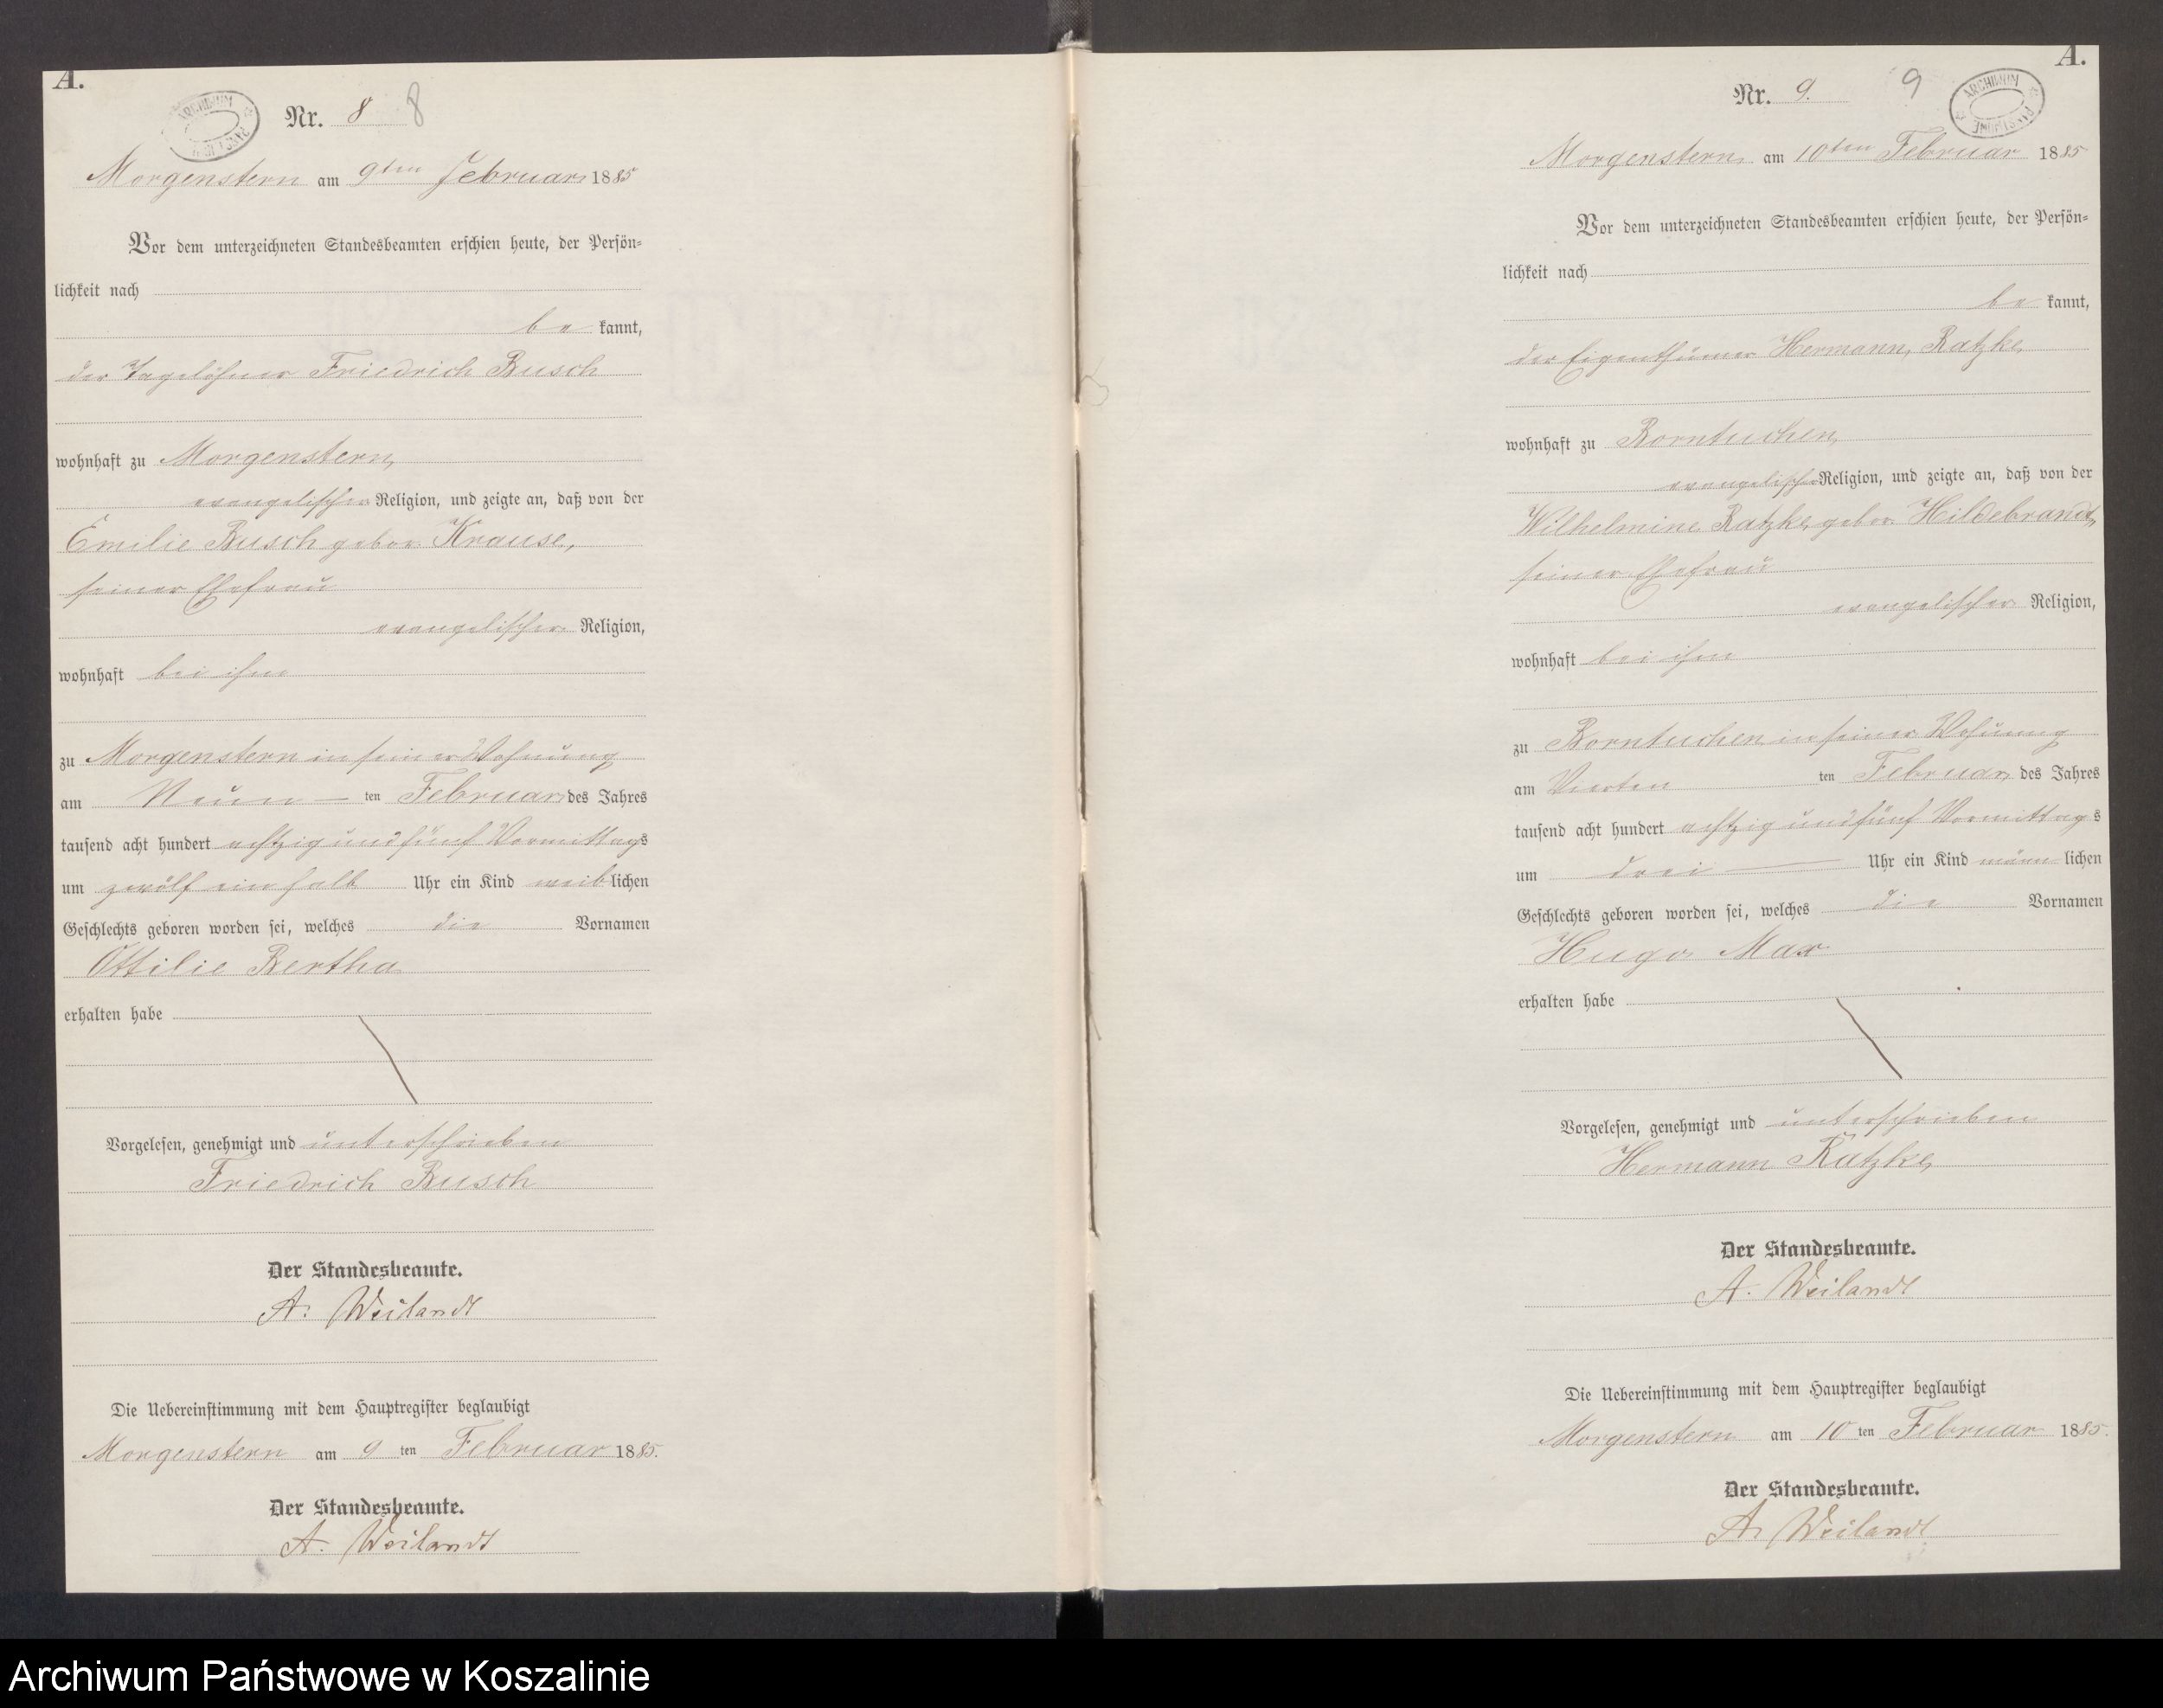 A.
ARCHIWUM PAŃSTWOWE
Nr. 8 8
Morgenstern am 9ten Februar 1885
Vor dem unterzeichneten Standesbeamten erschien heute, der Persön-
lichkeit nach
be kannt,
der Tagelöhner Friedrich Busch
wohnhaft zu Morgenstern,
evangelischer Religion, und zeigte an, daß von der
Emilie Busch gebor. Krause,
seiner Ehefrau
evangelischer Religion,
wohnhaft bei ihm
zu Morgenstern in seiner Wohnung
am Neun – ten Februar des Jahres
tausend acht hundert achtzig und fünf Vormittags
um zwölf ein halb Uhr ein Kind weiblichen
Geschlechts geboren worden sei, welches die Vornamen
Ottilie Bertha
erhalten habe
Vorgelesen, genehmigt und unterschrieben
Friedrich Busch
Der Standesbeamte.
A. Weilandt
Die Uebereinstimmung mit dem Hauptregister beglaubigt
Morgenstern am 9 ten Februar 1885.
Der Standesbeamte.
A. Weilandt
A.
Nr. 9. 9
ARCHIWUM PAŃSTWOWE
Morgenstern am 10ten Februar 1885
Vor dem unterzeichneten Standesbeamten erschien heute, der Persön-
lichkeit nach
be kannt,
der Eigenthümer Hermann Ratzke
wohnhaft zu Borntuchen,
evangelischer Religion, und zeigte an, daß von der
Wilhelmine Ratzke gebor. Hildebrandt,
seiner Ehefrau
evangelischer Religion,
wohnhaft bei ihm
zu Borntuchen in seiner Wohnung
am Vierten ten Februar des Jahres
tausend acht hundert achtzig und fünf Vormittags
um drei — Uhr ein Kind männlichen
Geschlechts geboren worden sei, welches die Vornamen
Hugo Max
erhalten habe
Vorgelesen, genehmigt und unterschrieben
Hermann Ratzke
Der Standesbeamte.
A. Weilandt
Die Uebereinstimmung mit dem Hauptregister beglaubigt
Morgenstern am 10 ten Februar 1885.
Der Standesbeamte.
A. Weilandt
Archiwum Państwowe w Koszalinie